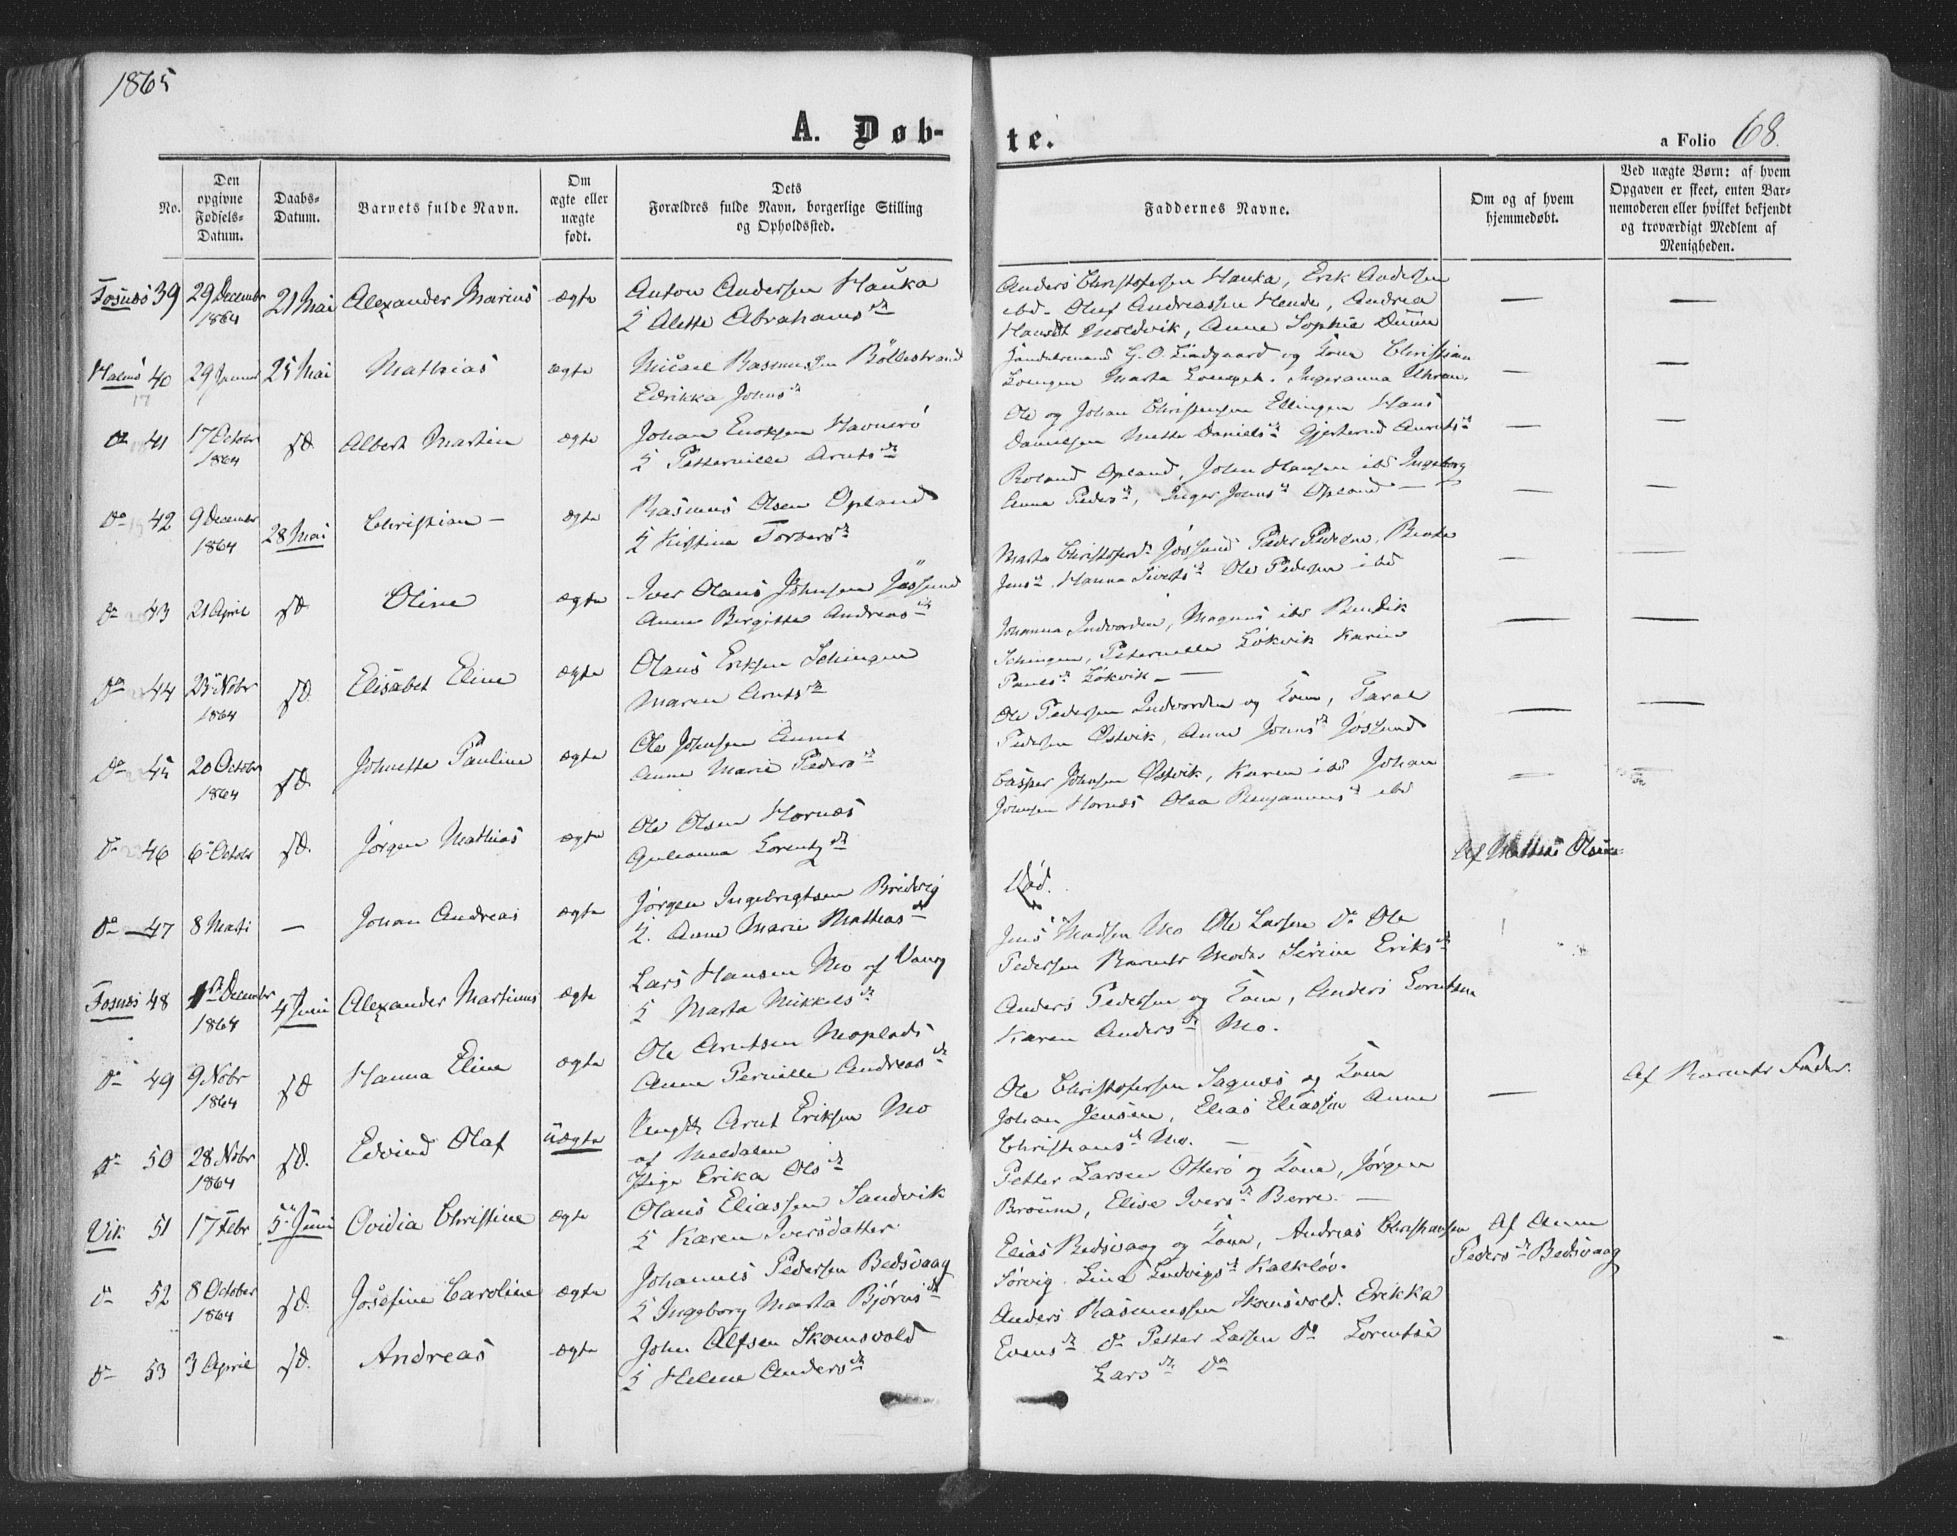 1865
A. Døb-
te.
a Folio 68.
No.
Den
opgivne
Fødsels-
Datum.
Daabs-
Datum.
Barnets fulde Navn.
Om
ægte eller
uægte
født.
Dets
Forældres fulde Navn, borgerlige Stilling
og Opholdssted.
Faddernes Navne.
Om og af hvem
hjemmedøbt.
Ved uægte Børn: af hvem
Opgaven er skeet, enten Bar-
nemoderen eller hvilket bekjendt
og troværdigt Medlem af
Menigheden.
Fosnæs 39 29 Decembr 1864 21 Mai Alexander Marius ægte
Anton Andersen Hauka
Alette Abrahamsdr
Anders Christofersen Hauka, Erik Andersen
ibd. Oluf Andreassen Hende, Andrea
Hansdr Moldvik, Anne Sophie Duun
40 29 Januar 25 Mai Mathias ægte
Micael Rasmussen Böllestrand
Edrikka Johnsdr
G. O. Lindgaard og Kone Christian
Loengen Marta Ingeranna
Do 41 17 Octobr 1864 sD. Albert Martin ægte
Johan Enoksen Havnerö
Petternille Arntsdr
Ole og Johan Christensen Ellingen Hans
Danielsen Mette Danielsdr Gjertrud Arntsdr
Do 42 9 Decembr 1864 28 Mai Christian - ægte
Rasmus Olsen Opland
Kistina Torbersdr
Roland Opland, John Hansen ibd Ingeborg
Anna Pedersdr, Inger Johnsdr Opland
Do 43 21 April sD. Oline ægte
Iver Olaus Johnsen Jössund
Anne Birgitte Andreasdr
Marta Christofersdr Jössund Peder Pedersen, Berta
Jensdr, Hanna Sivertsdr Ole Pedersen ibd
Do 44 25 Nobr 1864 sD. Elisabet Eline ægte
Olaus Eriksen Sehingen
Maren Arntsdr
Johanna Indvorden, Magnus ibd Bendik
Sehingen, Peternella Lökvik Karin
Paulsdr Lökvik
Do 45 20 Octobr 1864 sD. Johnetta Pauline ægte
Ole Johnsen
Anne Marie Pedersdr
Ole Pedersen Indvorden og Kone,
Pedersen Østvik, Anne Johnsdr Jössund
Do 46 6 Octobr sD. Jørgen Mathias ægte
Ole Olsen Hornæs
Gulianna Lorentzdr
Casper Johnsen Østvik, Karen ibd Johan
Johnsen Hornæs Olea Benjaminsdr ibd
Do 47 8 Marti — Johan Andreas ægte
Jørgen Ingebrigtsen Bredvig
Anne Marie Mathiasdr
Död.
Fosnæs 48 Decembr 1864 4 Juni Alexander Martinus ægte
Lars Hansen Mo af Vang
Marta Mikkelsdr
Jens Madsen Mo Ole Larsen Do Ole
Pedersen Barnets Moder Serine Eriksdr
Do 49 9 Nobr 1864 sD. Hanna Eline ægte
Ole Arntsen Moplads
Anne Pernille Andreasdr
Anders Pedersen og Kone, Anders Lorntsen
Karen Andersdr Mo.
Do 50 28 Nobr 1864 sD. Edvind Olaf Uægte
Ungk. Arnt Eriksen Mo
af Meldalen
Pige Erika Olsdr
Ole Christofersen Sagnæs og Kone
Johan Jensen, Elias Eliassen Anne
Christiansdr Mo.
Af Barnets Fader.
Vik 51 17 Febr 5 Juni Ovidia Christine ægte
Olaus Eliassen Sandvik
Karen Iversdatter
Petter Larsen Otterö og Kone, Jørgen
Bröum, Elise Iversdr Berre.
Do 52 8 October 1864 sD. Josefine Caroline ægte
Johannes Pedersen Bedsvaag
Ingeborg Marta Bjørnsdr
Elias Bedsvaag og Kone, Andreas Christiansen
Sörvig. Lina Ludvigsdr Kalklöv.
Af Anne
Pedersdr Bedsvaag
Do 53 3 April sD. Andreas ægte
John Alfsen Skomsvold
Helene Andersdr
Anders Rasmussen Skomsvold. Erikka
Evensdr Do Petter Larsen Do Lorentse
Larsdr Do